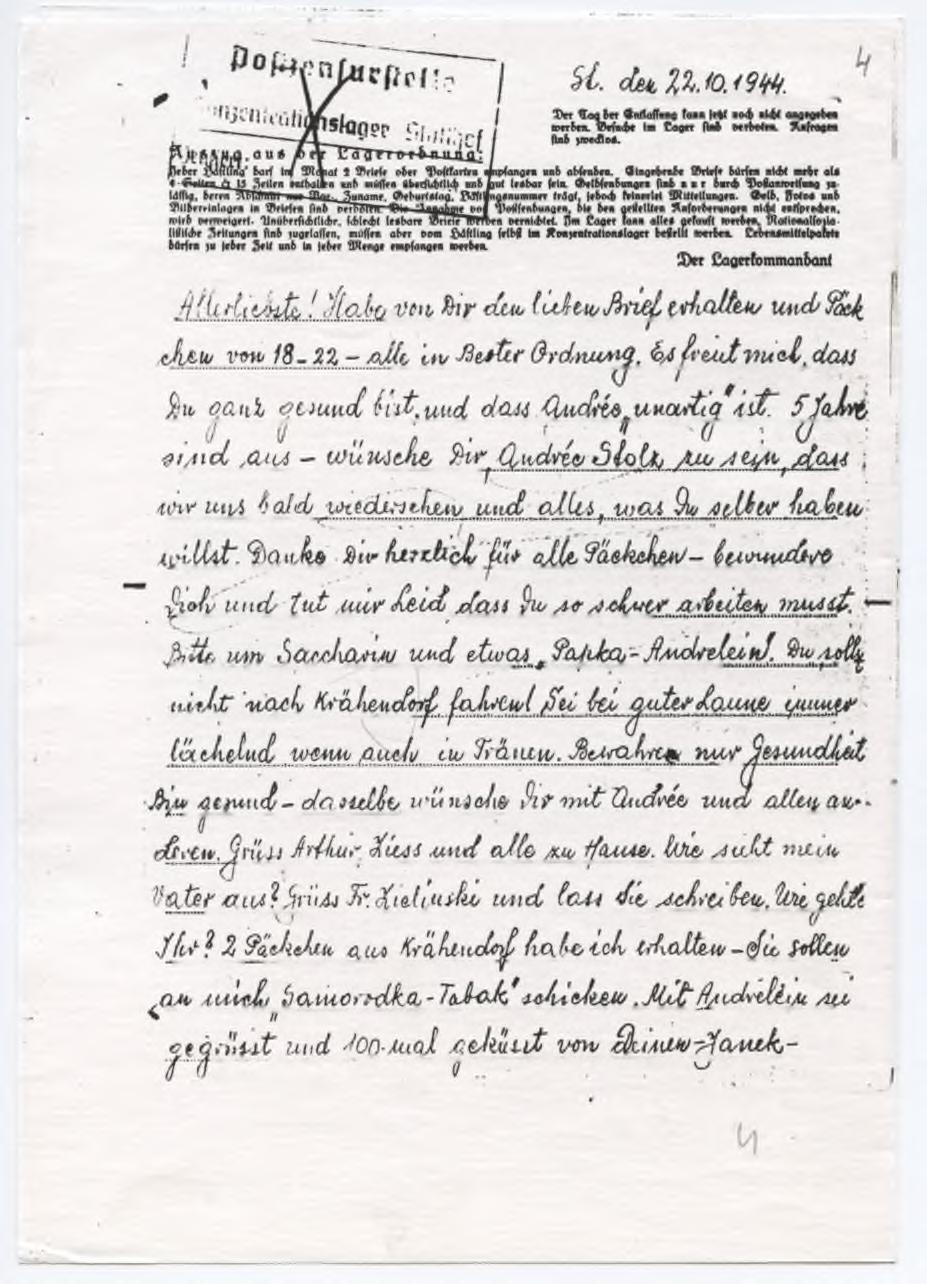 4
Postzensurstelle
St. den 22.10.1944.
Konzentrationslager Stutthof
Der Tag der Entlassung kann jetzt noch nicht angegeben
werden. Besuche im Lager sind verboten. Anfragen
sind zwecklos.
Auszug aus der Lagerordnung:
Jeder Häftling darf im Monat 2 Briefe oder Postkarten empfangen und absenden. Eingehende Briefe dürfen nicht mehr als
4 Seiten à 15 Zeilen enthalten und müssen übersichtlich und gut lesbar sein. Geldsendungen sind nur durch Postanweisung zu-
lässig, deren Abschnitt nur Vor-, Zuname, Geburtstag, Häftlingsnummer trägt, jedoch keinerlei Mitteilungen. Geld, Fotos und
Bildereinlagen in Briefen sind verboten. Die Annahme von Postsendungen, die den gestellten Anforderungen nicht entsprechen,
wird verweigert. Unübersichtliche, schlecht lesbare Briefe werden vernichtet. Im Lager kann alles gekauft werden. Nationalsozia-
listische Zeitungen sind zugelassen, müssen aber vom Häftling selbst im Konzentrationslager bestellt werden. Lebensmittelpakete
dürfen zu jeder Zeit und in jeder Menge empfangen werden.
Der Lagerkommandant
Allerliebste! Habe von Dir den lieben Brief erhalten und Päck
chen von 18-22 - alle in Bester Ordnung. Es freut mich, dass
Du ganz gesund bist, und dass Andrée „unartig" ist. 5 Jahre
sind aus - wünsche Dir, Andrée Stolz zu sein, dass
wir uns bald wiedersehen und alles, was Du selber haben
willst. Danke Dir herzlich für alle Päckchen - bewundere
Dich und tut mir Leid dass Du so schwer arbeiten musst.
Bitte um Saccharin und etwas „Papka-Andrelein". Du sollst
nicht nach Krähendorf fahren! Sei bei guter Laune immer
lächelnd wenn auch in Tränen. Bewahren nur Gesundheit
Bin gesund - dasselbe wünsche Dir mit Andrée und allen an-
deren. Grüss Arthur, Ziess und alle zu Hause. Wie sieht mein
Vater aus? Grüss Fr. Zielinski und lass Sie schreiben. Wie geht's
Ihr? 2 Päckchen aus Krähendorf habe ich erhalten - Sie sollen
an mich „Samorodka-Tabak" schicken. Mit Andrelein sei
gegrüsst und 100-mal geküsst von Deinen-Janek-
4